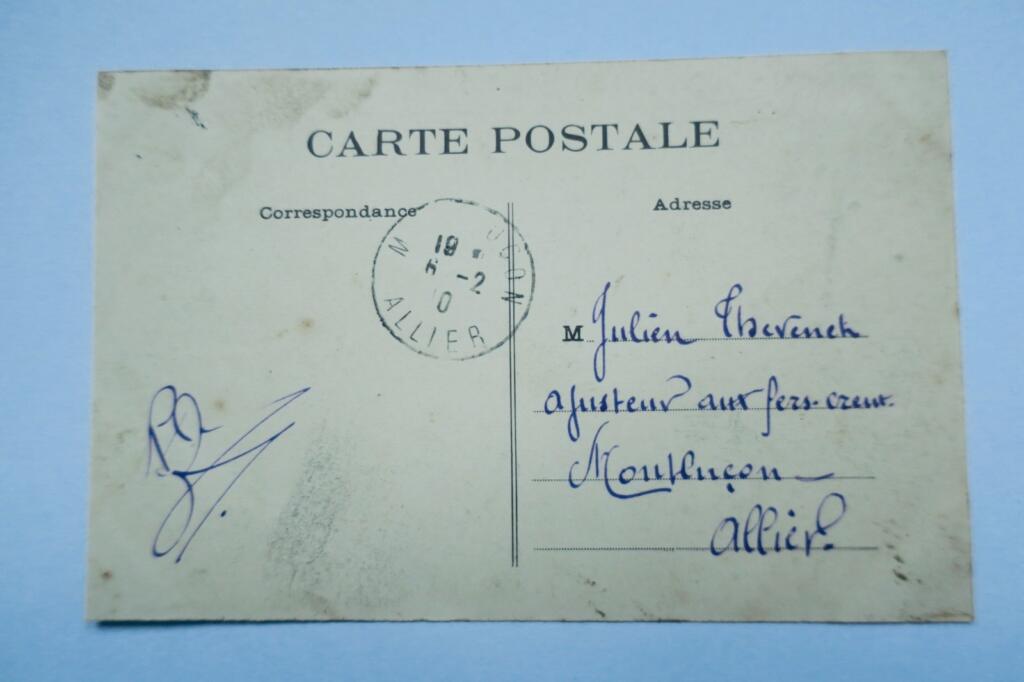 CARTE POSTALE
Correspondance
Adresse
M UÇON
19
6 -2
10
ALLIER
M Julien Thevenet
ajusteur aux fers creux.
Montluçon
Allier.